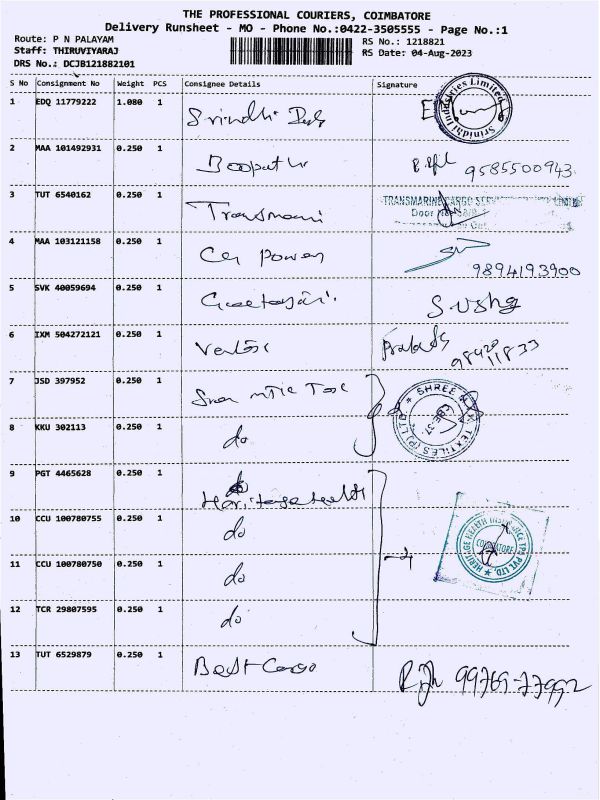 THE PROFESSIONAL COURIERS, COIMBATORE
Delivery Runsheet - MO - Phone No.:0422-3505555 - Page No.:1
Route: P N PALAYAM RS No.: 1218821
Staff: THIRUVIYARAJ RS Date: 04-Aug-2023
DRS No.: DCJB121882101
S No Consignment No Weight PCS Consignee Details Signature
1 EDQ 11779222 1.080 1 Srinidhi Srinidhi Industries Limited
2 MAA 101492931 0.250 1 Boopathi 9585500943
3 TUT 6540162 0.250 1 Transmani TRANSMARINE CARGO
Door No
4 MAA 103121158 0.250 1 Power 9894193900
5 SVK 40059694 0.250 1 S. Usha
6 IXM 504272121 0.250 1 98420
11833
7 JSD 397952 0.250 1 SHREE TEXTILES (P) LTD. CBE-37
8 KKU 302113 0.250 1 do
9 PGT 4465628 0.250 1 Heritage health
10 CCU 100780755 0.250 1 do HERITAGE HEALTH INSURANCE TPA PVT. LTD. COIMBATORE
11 CCU 100780750 0.250 1 do
12 TCR 29807595 0.250 1 do
13 TUT 6529879 0.250 1 Best Cargo 99769-77992